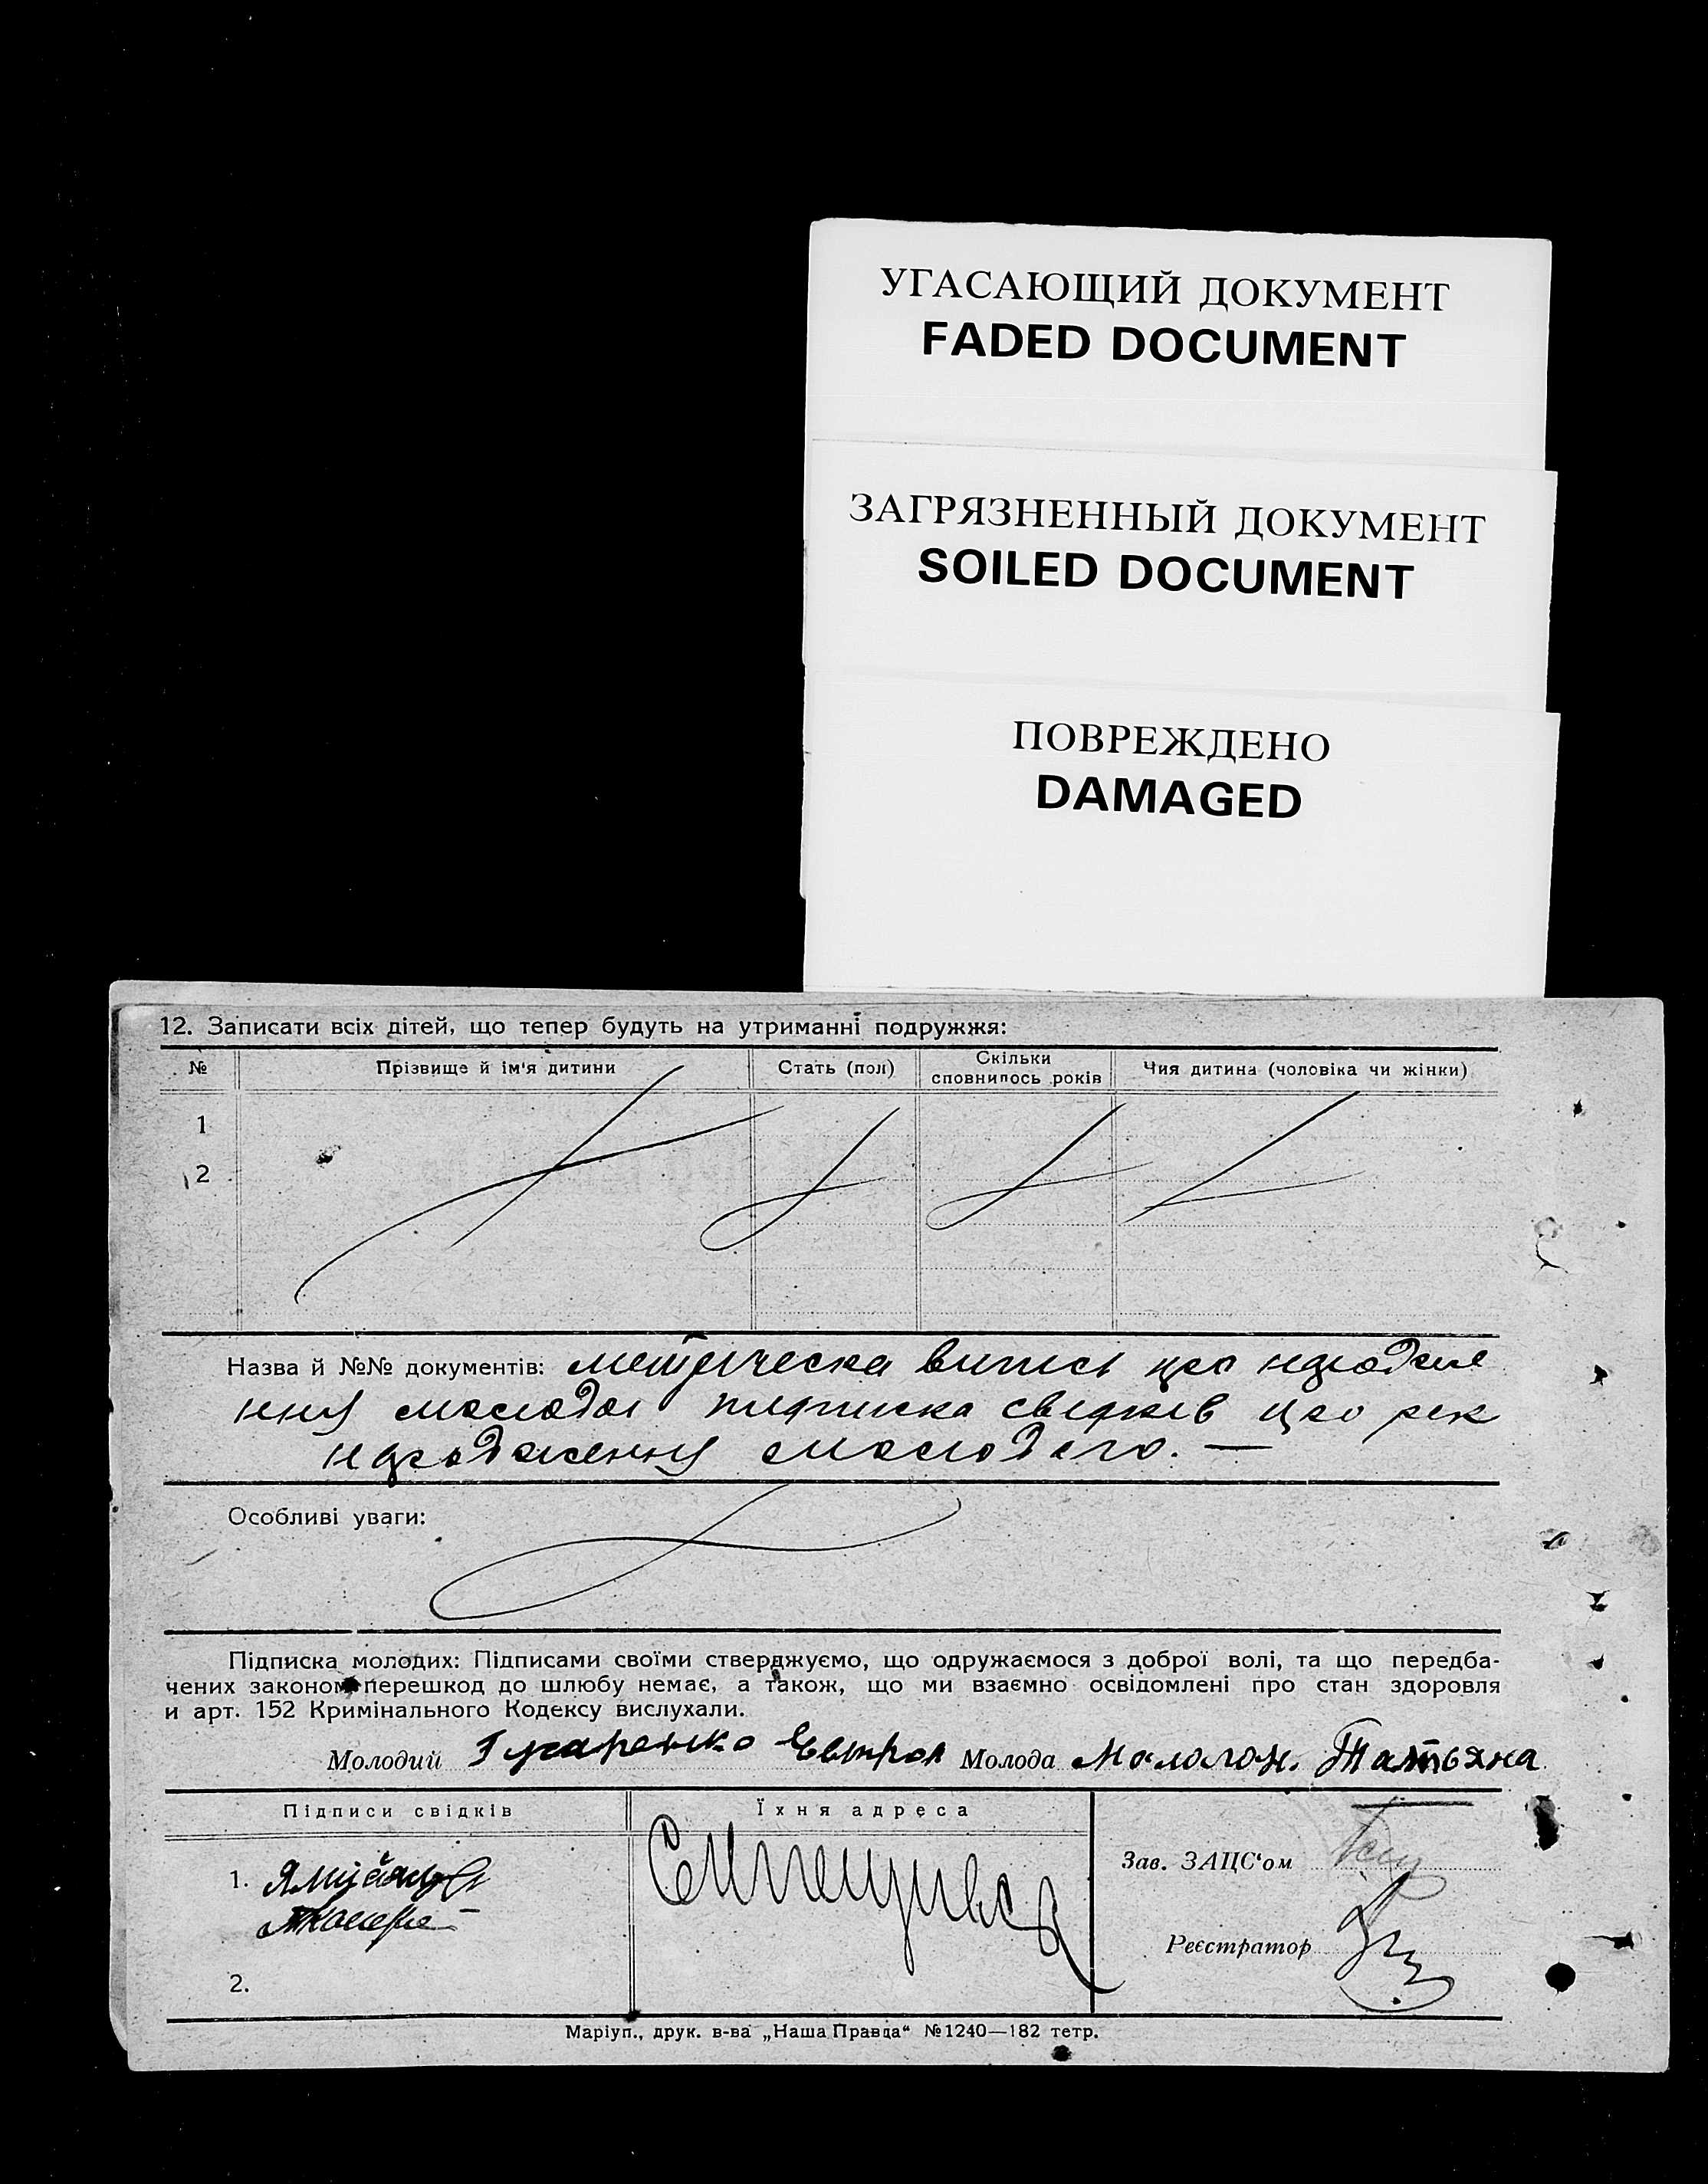 УГАСАЮЩИЙ ДОКУМЕНТ
FADED DOCUMENT
ЗАГРЯЗНЕННЫЙ ДОКУМЕНТ
SOILED DOCUMENT
ПОВРЕЖДЕНО
DAMAGED
12. Записати всіх дітей, що тепер будуть на утриманні подружжя:
№ Прізвище й ім'я дитини Стать (пол) Скільки сповнилось років Чия дитина (чоловіка чи жінки)
1
2
Назва й №№ документів: метрическа випись про народже
ння молодої підписка свідків про рік
народження молодого. —
Особливі уваги:
Підписка молодих: Підписами своїми стверджуємо, що одружаємося з доброї волі, та що передба-
чених законом перешкод до шлюбу немає, а також, що ми взаємно освідомлені про стан здоровля
и арт. 152 Кримінального Кодексу вислухали.
Молодий Молода Татьяна
Підписи свідків Їхня адреса
1.
Зав. ЗАЦС'ом
Реєстратор
2.
Маріуп., друк. в-ва „Наша Правда“ №1240—182 тетр.